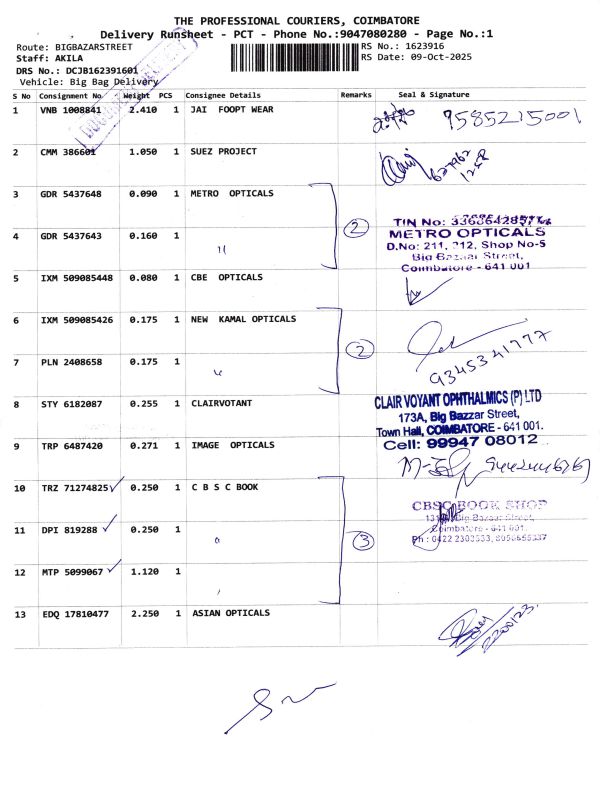 THE PROFESSIONAL COURIERS, COIMBATORE
Delivery Runsheet - PCT - Phone No.:9047080280 - Page No.:1
Route: BIGBAZARSTREET
RS No.: 1623916
Staff: AKILA
RS Date: 09-Oct-2025
DRS No.: DCJB162391601
Vehicle: Big Bag Delivery
S No Consignment No Weight PCS Consignee Details Remarks Seal & Signature
1 VNB 1008841 2.410 1 JAI FOOPT WEAR 7585215001
2 CMM 386601 1.050 1 SUEZ PROJECT
3 GDR 5437648 0.090 1 METRO OPTICALS
4 GDR 5437643 0.160 1 〃 2
TIN No:
METRO OPTICALS
D.No: 211, 212, Shop No-5
Big Bazaar Street,
Coimbatore - 641 001
5 IXM 509085448 0.080 1 CBE OPTICALS
6 IXM 509085426 0.175 1 NEW KAMAL OPTICALS
7 PLN 2408658 0.175 1 〃 2 9345341777
8 STY 6182087 0.255 1 CLAIRVOTANT
CLAIR VOYANT OPHTHALMICS (P) LTD
173A, Big Bazzar Street,
Town Hall, COIMBATORE - 641 001.
Cell: 99947 08012
9 TRP 6487420 0.271 1 IMAGE OPTICALS
10 TRZ 71274825 ✓ 0.250 1 C B S C BOOK
CBSC BOOK SHOP
Big Bazaar Street,
Coimbatore - 641 001.
11 DPI 819288 ✓ 0.250 1 〃 3
12 MTP 5099067 ✓ 1.120 1
13 EDQ 17810477 2.250 1 ASIAN OPTICALS